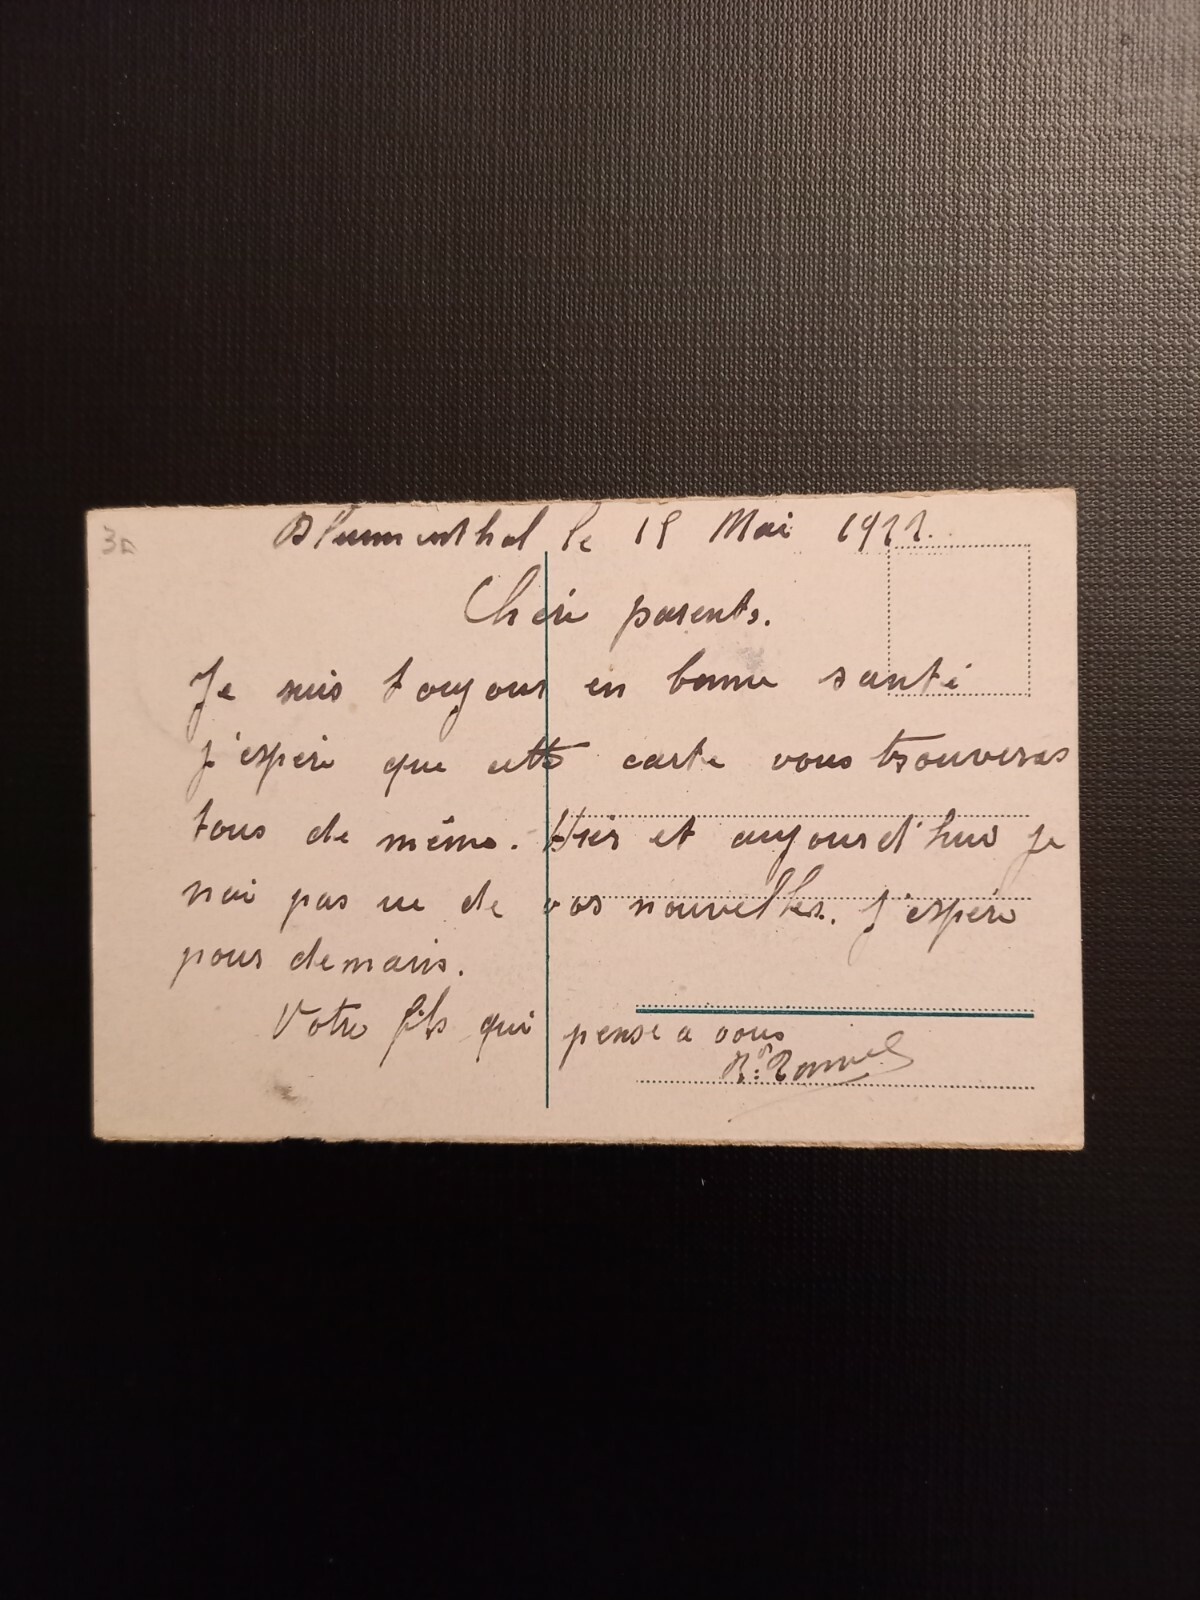 Blumenthal le 15 Mai 1922.
Chéri parents.
Je suis toujours en bonne santé
j'espère que cette carte vous trouveras
tous de même. Hier et aujourd'hui je
n'ai pas eu de vos nouvelles. J'espère
pour demain.
Votre fils qui pense a vous